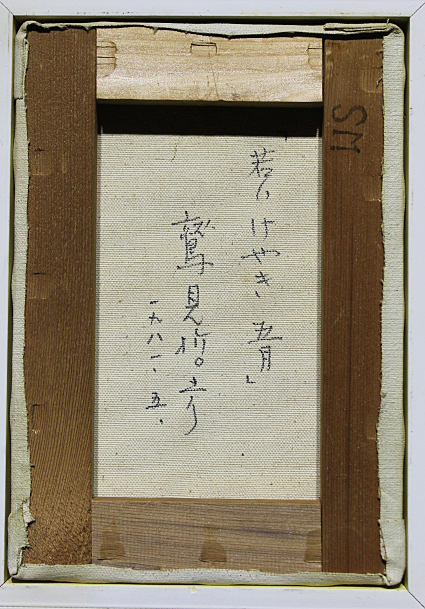 SM
「若いけやき 五月」
鷲見
一九八一、五、